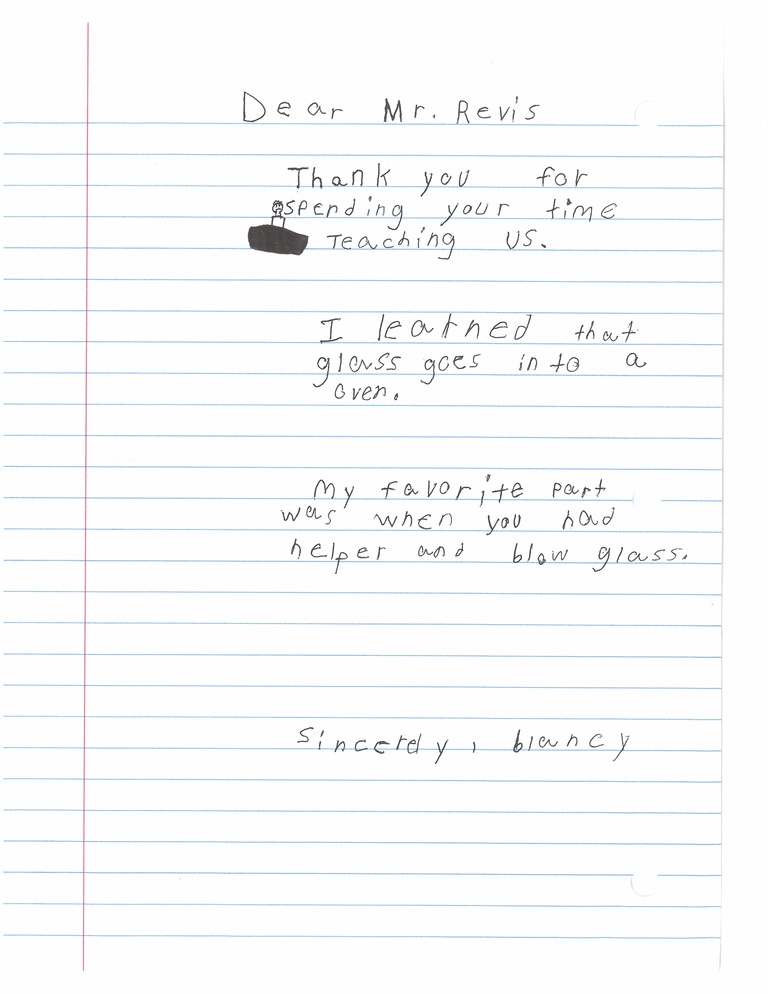 Dear Mr. Revis
Thank you for
spending your time
Teaching US.
I learned that
glass goes in to a
oven.
My favorite part
was when you had
helper and blow glass.
Sincerely, blancy